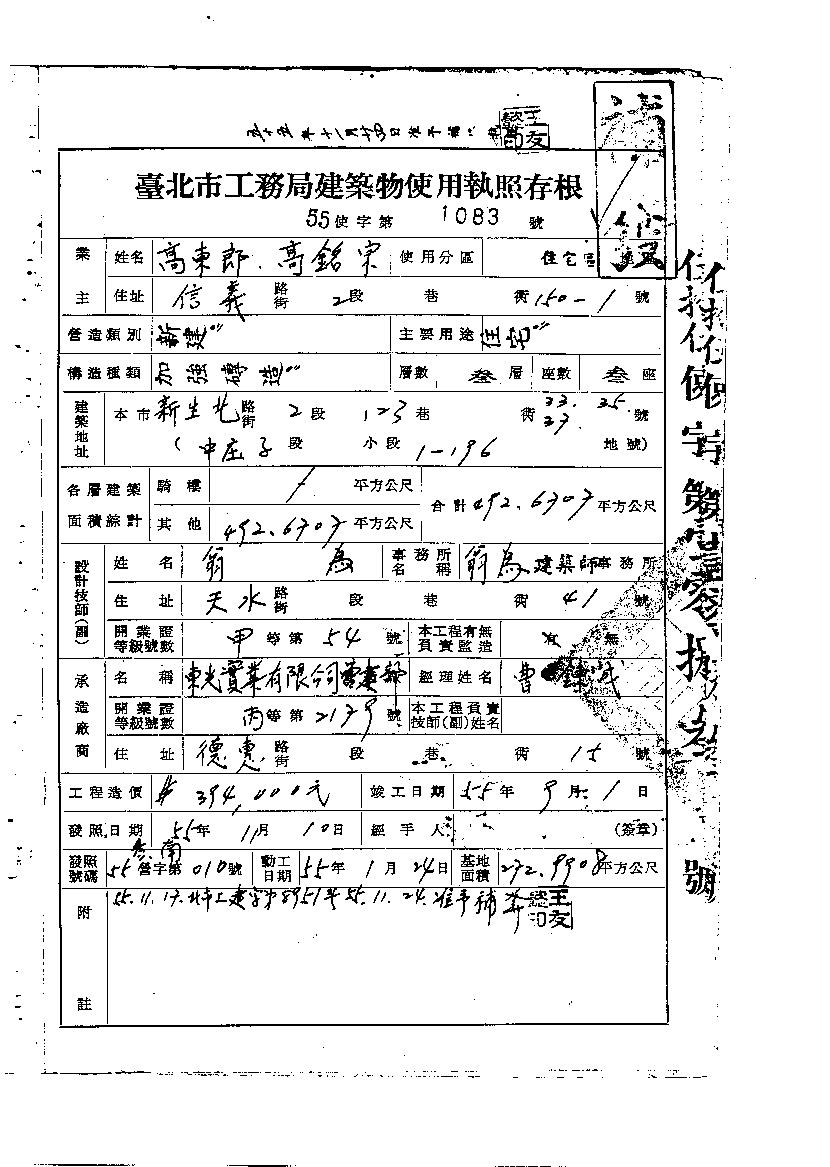 五十五年十一月廿四日准予補
王友
印
補發
臺北市工務局建築物使用執照存根
55使字第 1083 號
業主 姓名 高東郎、高銘宗 使用分區 住宅區
住址 信義 路街 2段 巷 衖150-1號
營造類別 新建 主要用途 住宅
構造種類 加強磚造 層數 叁層 座數 叁座
建築地址 本市新生北路街 2段 123巷 衖 33. 35. 37. 號
(中庄子段 小段 1-196 地號)
各層建築面積綜計 騎樓 / 平方公尺 合計492.6707平方公尺
其他 492.6707平方公尺
設計技師(副) 姓名 翁 為 事務所名稱 翁為建築師事務所
住址 天水路街 段 巷 衖 41 號
開業證等級號數 甲等第54號 本工程有無負責監造 有 無
承造廠商 名稱 東光實業有限公司營業部 經理姓名 曹
開業證等級號數 丙等第2179號 本工程負責技師(副)姓名
住址 德惠路街 段 巷 衖 15 號
工程造價 $ 394,000元 竣工日期 55年9月1日
發照日期 55年11月10日 經手人 (簽章)
發照號碼 55營字第010號 動工日期 55年1月24日 基地面積 272.9908平方公尺
附註 55.11.17.北市工建字第8951號55.11.24.准予補發
王友
印
號